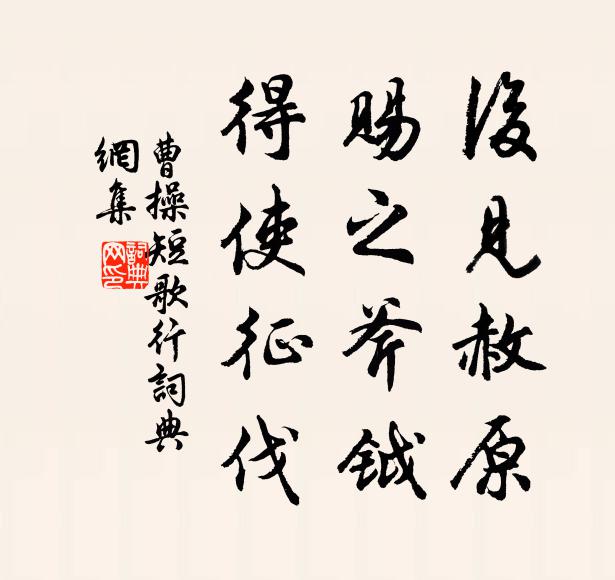 後見赦原
賜之斧鉞
得使征伐
曹操短歌行詞典
網集
詞典網印